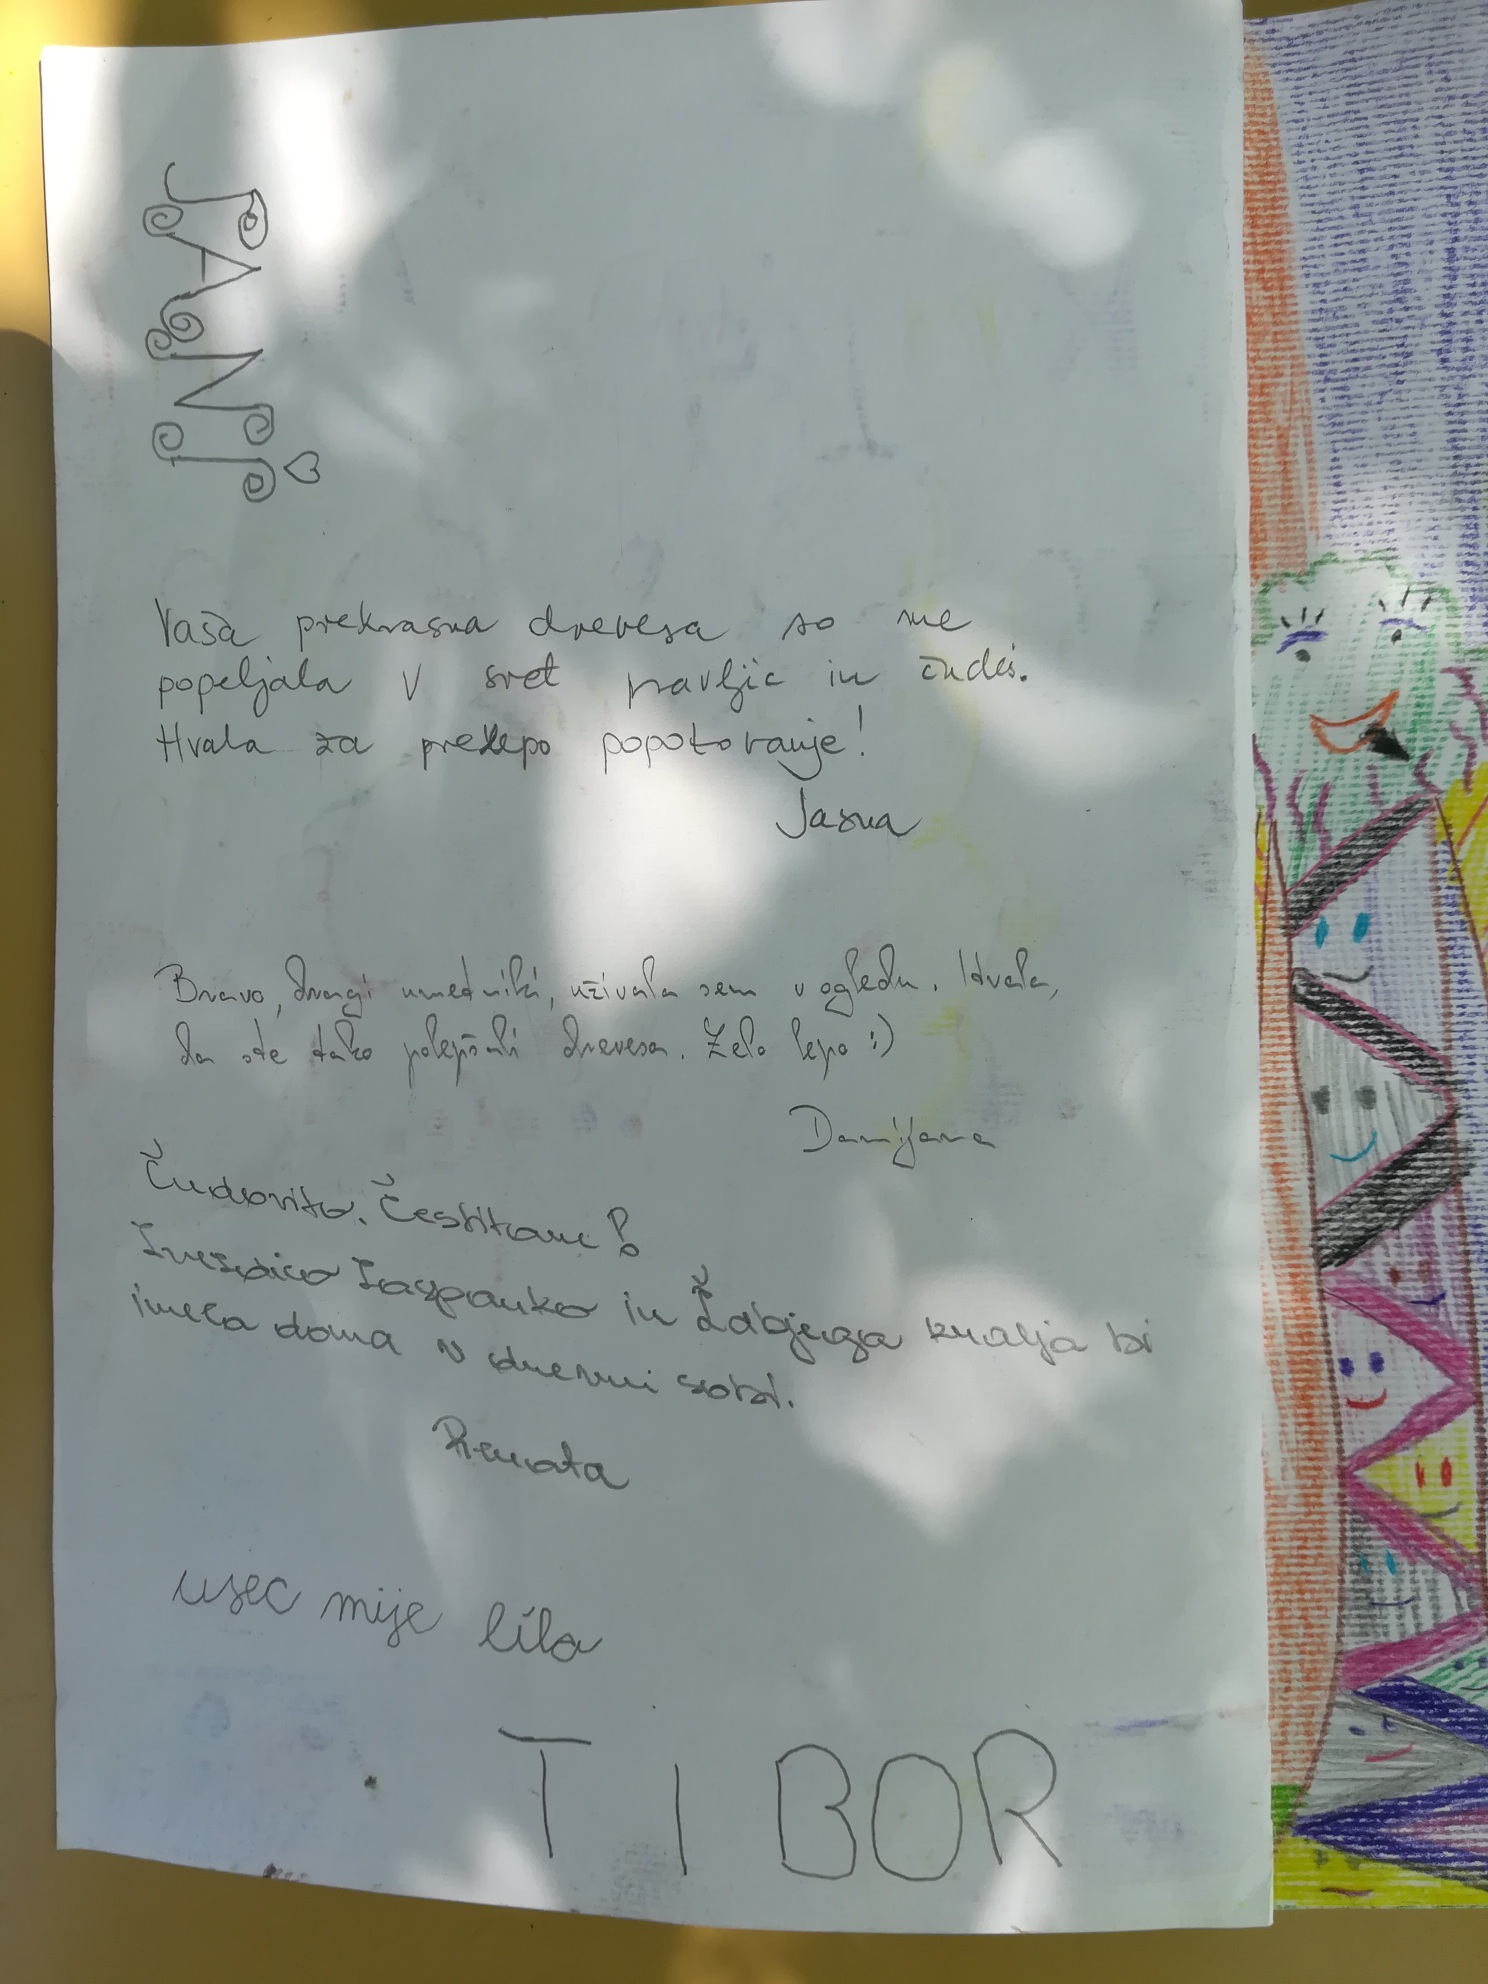 JANJ
Vaša prekrasna drevesa so me
popeljala v svet pravljic in čudes.
Hvala za prelepo popotovanje!
Jasna
Bravo, dragi umetniki, uživala sem v ogledu. Hvala,
da ste tako polepšali drevesa. Zelo lepo :)
Damijana
Čudovito. Čestitam!
Zvezdico Zaspanko in Žabjega kralja bi
imela doma v dnevni sobi.
Renata
usec mije lila
TIBOR